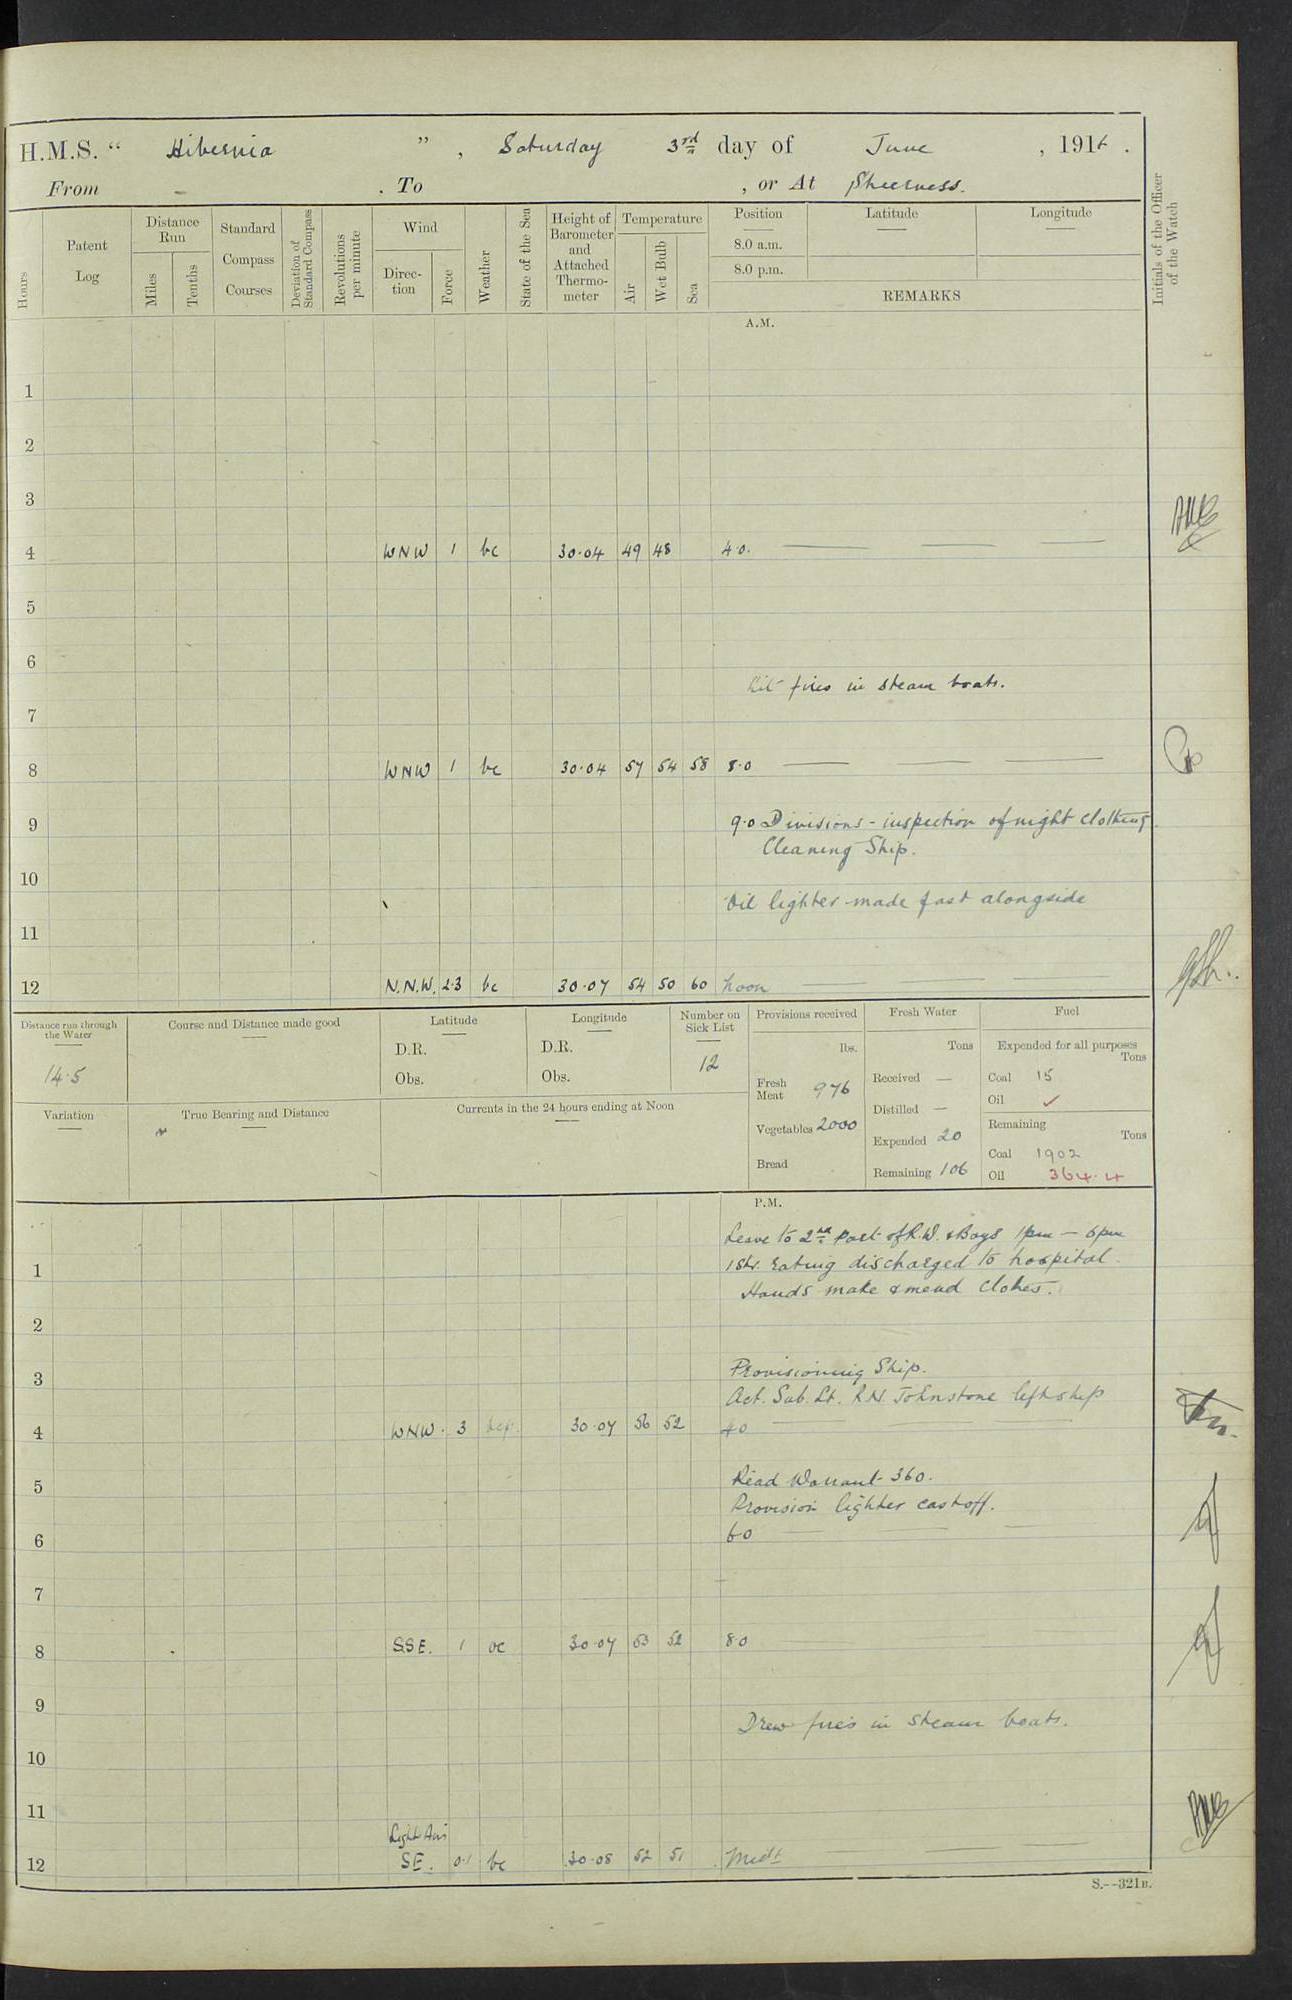 H.M.S. “ Hibernia ” , Saturday 3rd day of June , 1916 .
From - . To , or At Sheerness.
Hours
Patent Log
Distance Run
Miles
Tenths
Standard Compass Courses
Deviation of Standard Compass
Revolutions per minute
Wind
Direc-tion
Force
Weather
State of the Sea
Height of Barometer and Attached Thermo-meter
Temperature
Air
Wet Bulb
Sea
Position
8.0 a.m.
8.0 p.m.
Latitude
Longitude
REMARKS
Initials of the Officer of the Watch
A.M.
1
2
3
4 WNW 1 bc 30.04 49 48 4.0.
5
6
Lit fires in steam boats.
7
8 WNW 1 bc 30.04 57 54 58 8.0
9 9.0 Divisions - inspection of night clothing.
Cleaning Ship.
10
Oil lighter made fast alongside
11
12 N.N.W. 2.3 bc 30.07 54 50 60 Noon
Distance run through the Water
14.5
Course and Distance made good
Latitude
D.R.
Obs.
Longitude
D.R.
Obs.
Number on Sick List
12
Variation
True Bearing and Distance
Currents in the 24 hours ending at Noon
Provisions received
lbs.
Fresh Meat 976
Vegetables 2000
Bread
Fresh Water
Tons
Received —
Distilled —
Expended 20
Remaining 106
Fuel
Expended for all purposes
Tons
Coal 15
Oil ✓
Remaining
Tons
Coal 1902
Oil 364.4
P.M.
Leave to 2nd Part of R.W. & Boys 1pm — 6pm
1 rating discharged to hospital.
1
Hands make & mend clothes.
2
3 Provisioning Ship.
Act. Sub. Lt. R.N. Johnstone left ship
4 WNW. 3 30.07 56 52 4.0
5 Read Warrant 360.
Provision lighter cast off.
6 6.0
7
8 S.S.E. 1 bc 30.07 53 52 8.0
9
Drew fires in steam boats.
10
11
Light Airs
12 SE. 0.1 bc 30.08 52 51 Midt
S.--321B.